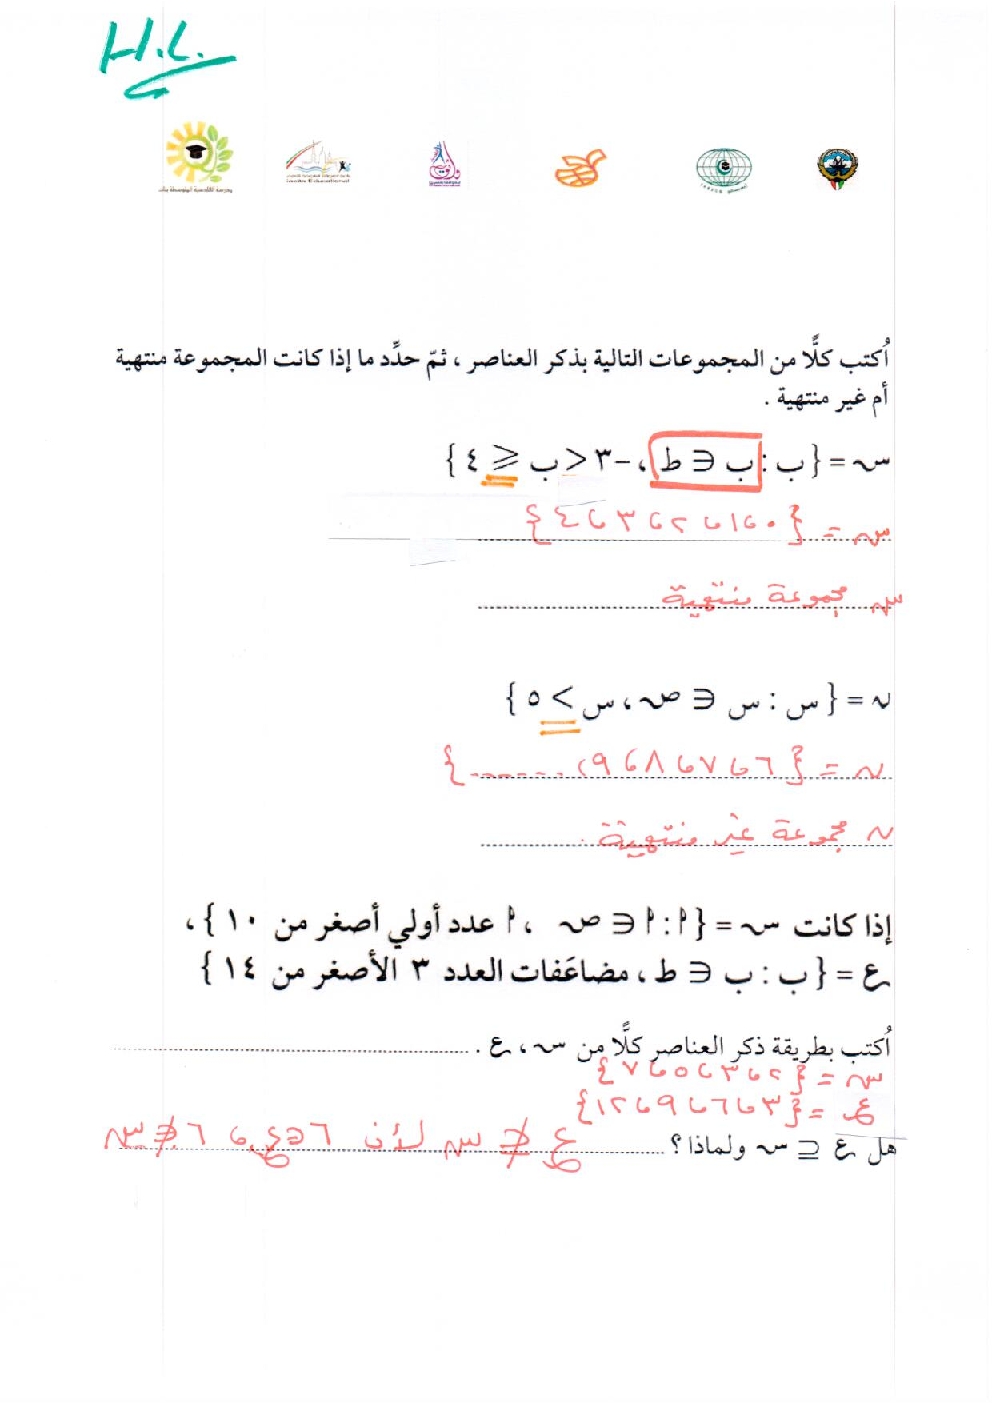 H.L.
أُكتب كلًّا من المجموعات التالية بذكر العناصر ، ثمّ حدِّد ما إذا كانت المجموعة منتهية
أم غير منتهية .
سـ = { ب : ب ∈ ط ، -٣ < ب ⩽ ٤ }
سـ = { ٠ ، ١ ، ٢ ، ٣ ، ٤ }
سـ مجموعة منتهية
ن = { س : س ∈ صـ ، س > ٥ }
ن = { ٦ ، ٧ ، ٨ ، ٩ ، ....... }
ن مجموعة غير منتهية
إذا كانت سـ = { أ : أ ∈ صـ ، أ عدد أولي أصغر من ١٠ } ،
ع = { ب : ب ∈ ط ، مضاعَفات العدد ٣ الأصغر من ١٤ }
أُكتب بطريقة ذكر العناصر كلًّا من سـ ، ع .
سـ = { ٢ ، ٣ ، ٥ ، ٧ }
ع = { ٣ ، ٦ ، ٩ ، ١٢ }
هل ع ⊆ سـ ولماذا ؟ ع ⊄ سـ لأن ٦ ∈ ع ، ٦ ∉ سـ